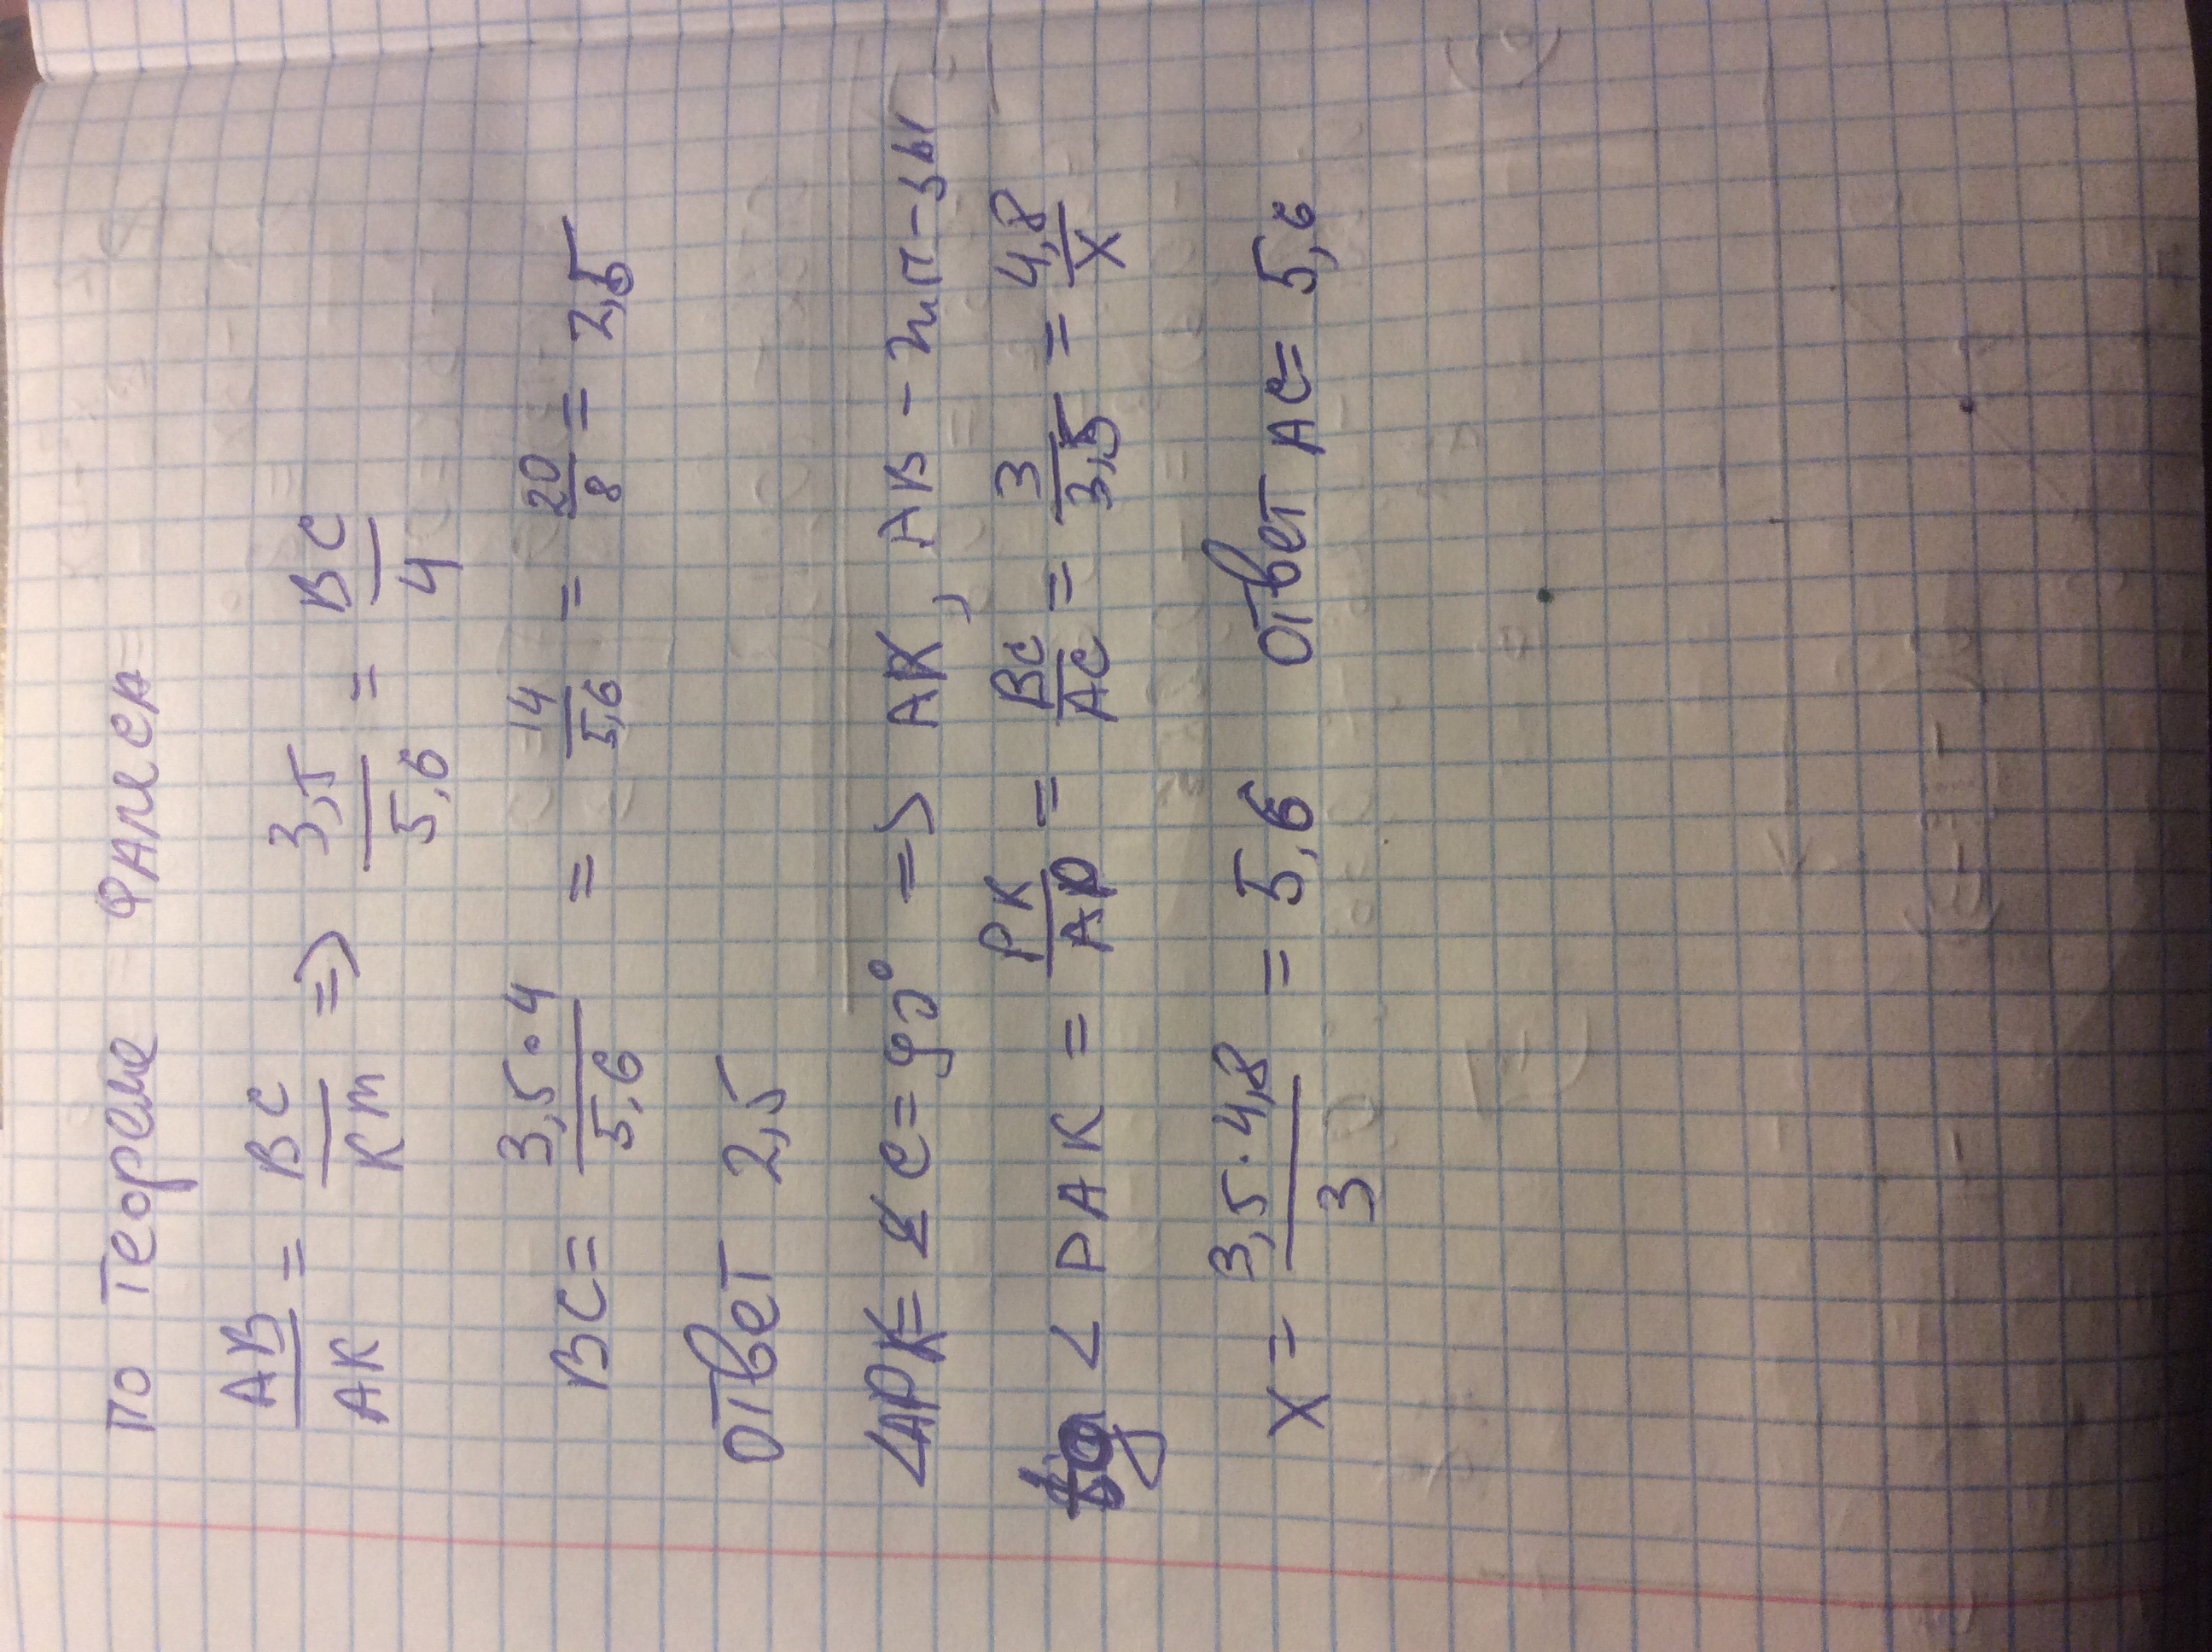 по теореме Фалеса
AB/AK = BC/KM => 3,5/5,6 = BC/4
BC = 3,5·4/5,6 = 14/5,6 = 20/8 = 2,5
ответ 2,5
∠APK = ∠C = 90° => AK, AB - гип-зы
tg ∠PAK = PK/AP = BC/AC = 3/3,5 = 4,8/x
x = 3,5·4,8/3 = 5,6 ответ AC = 5,6